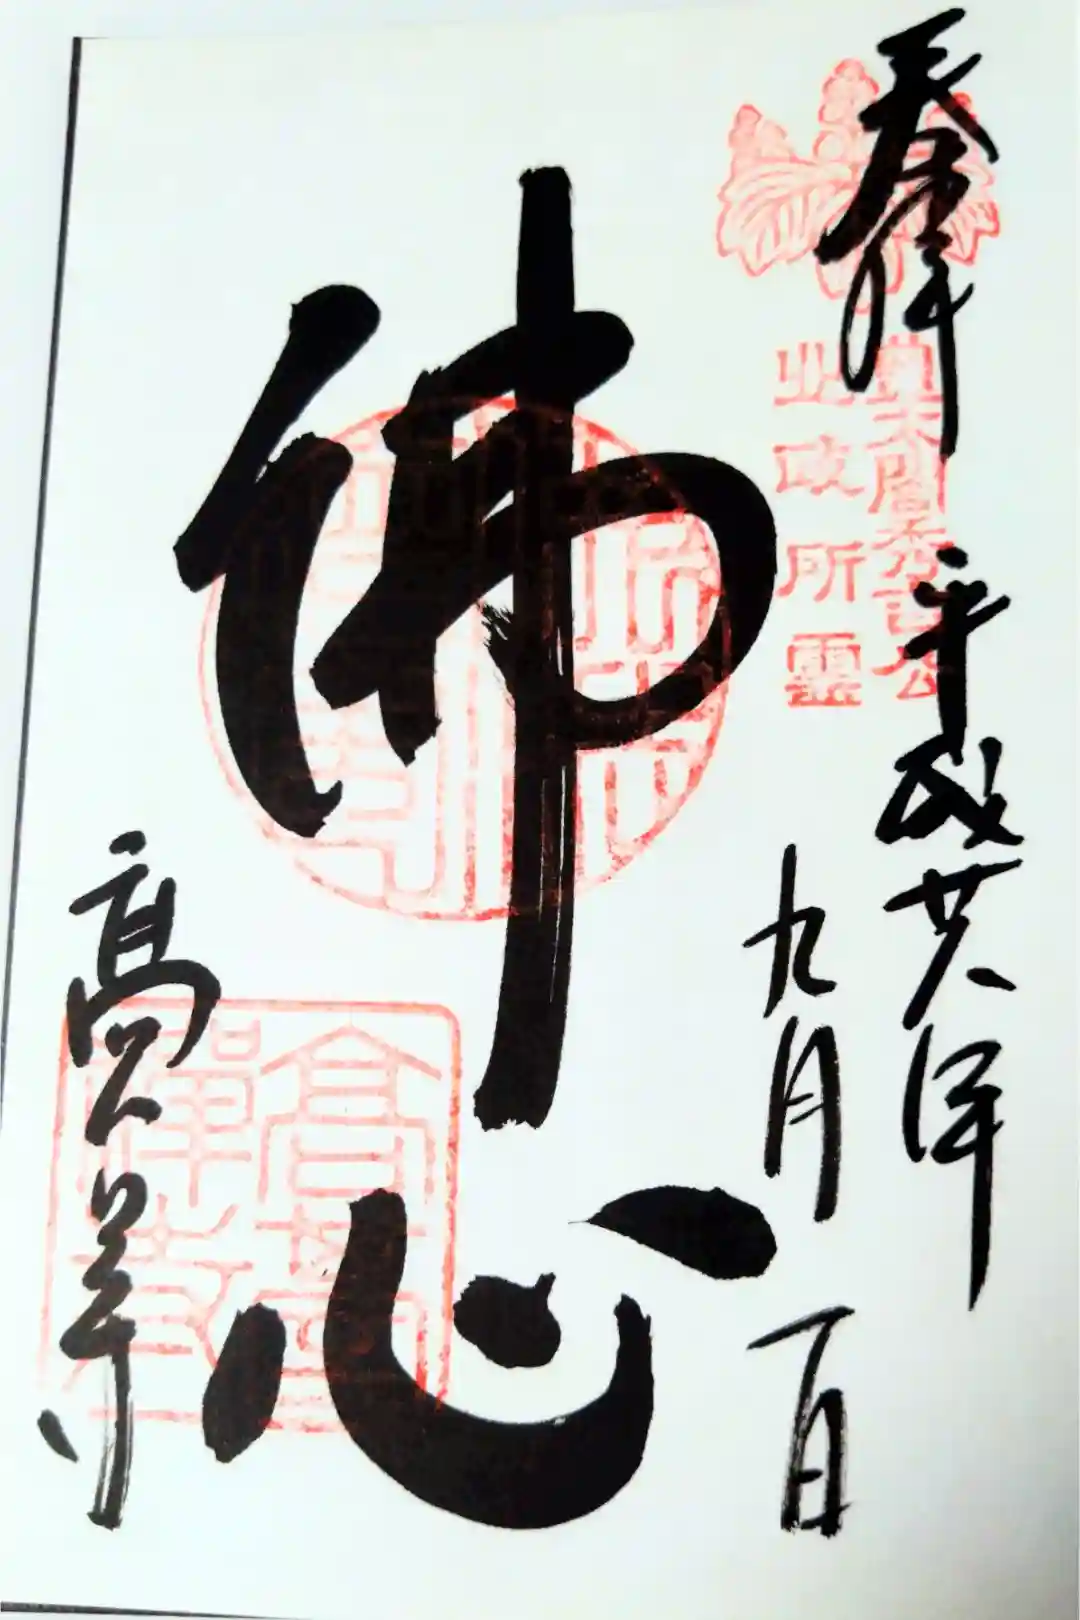 奉拝
豊太閤秀吉公
北政所霊
平成廿八年
九月一日
佛心
高台寺